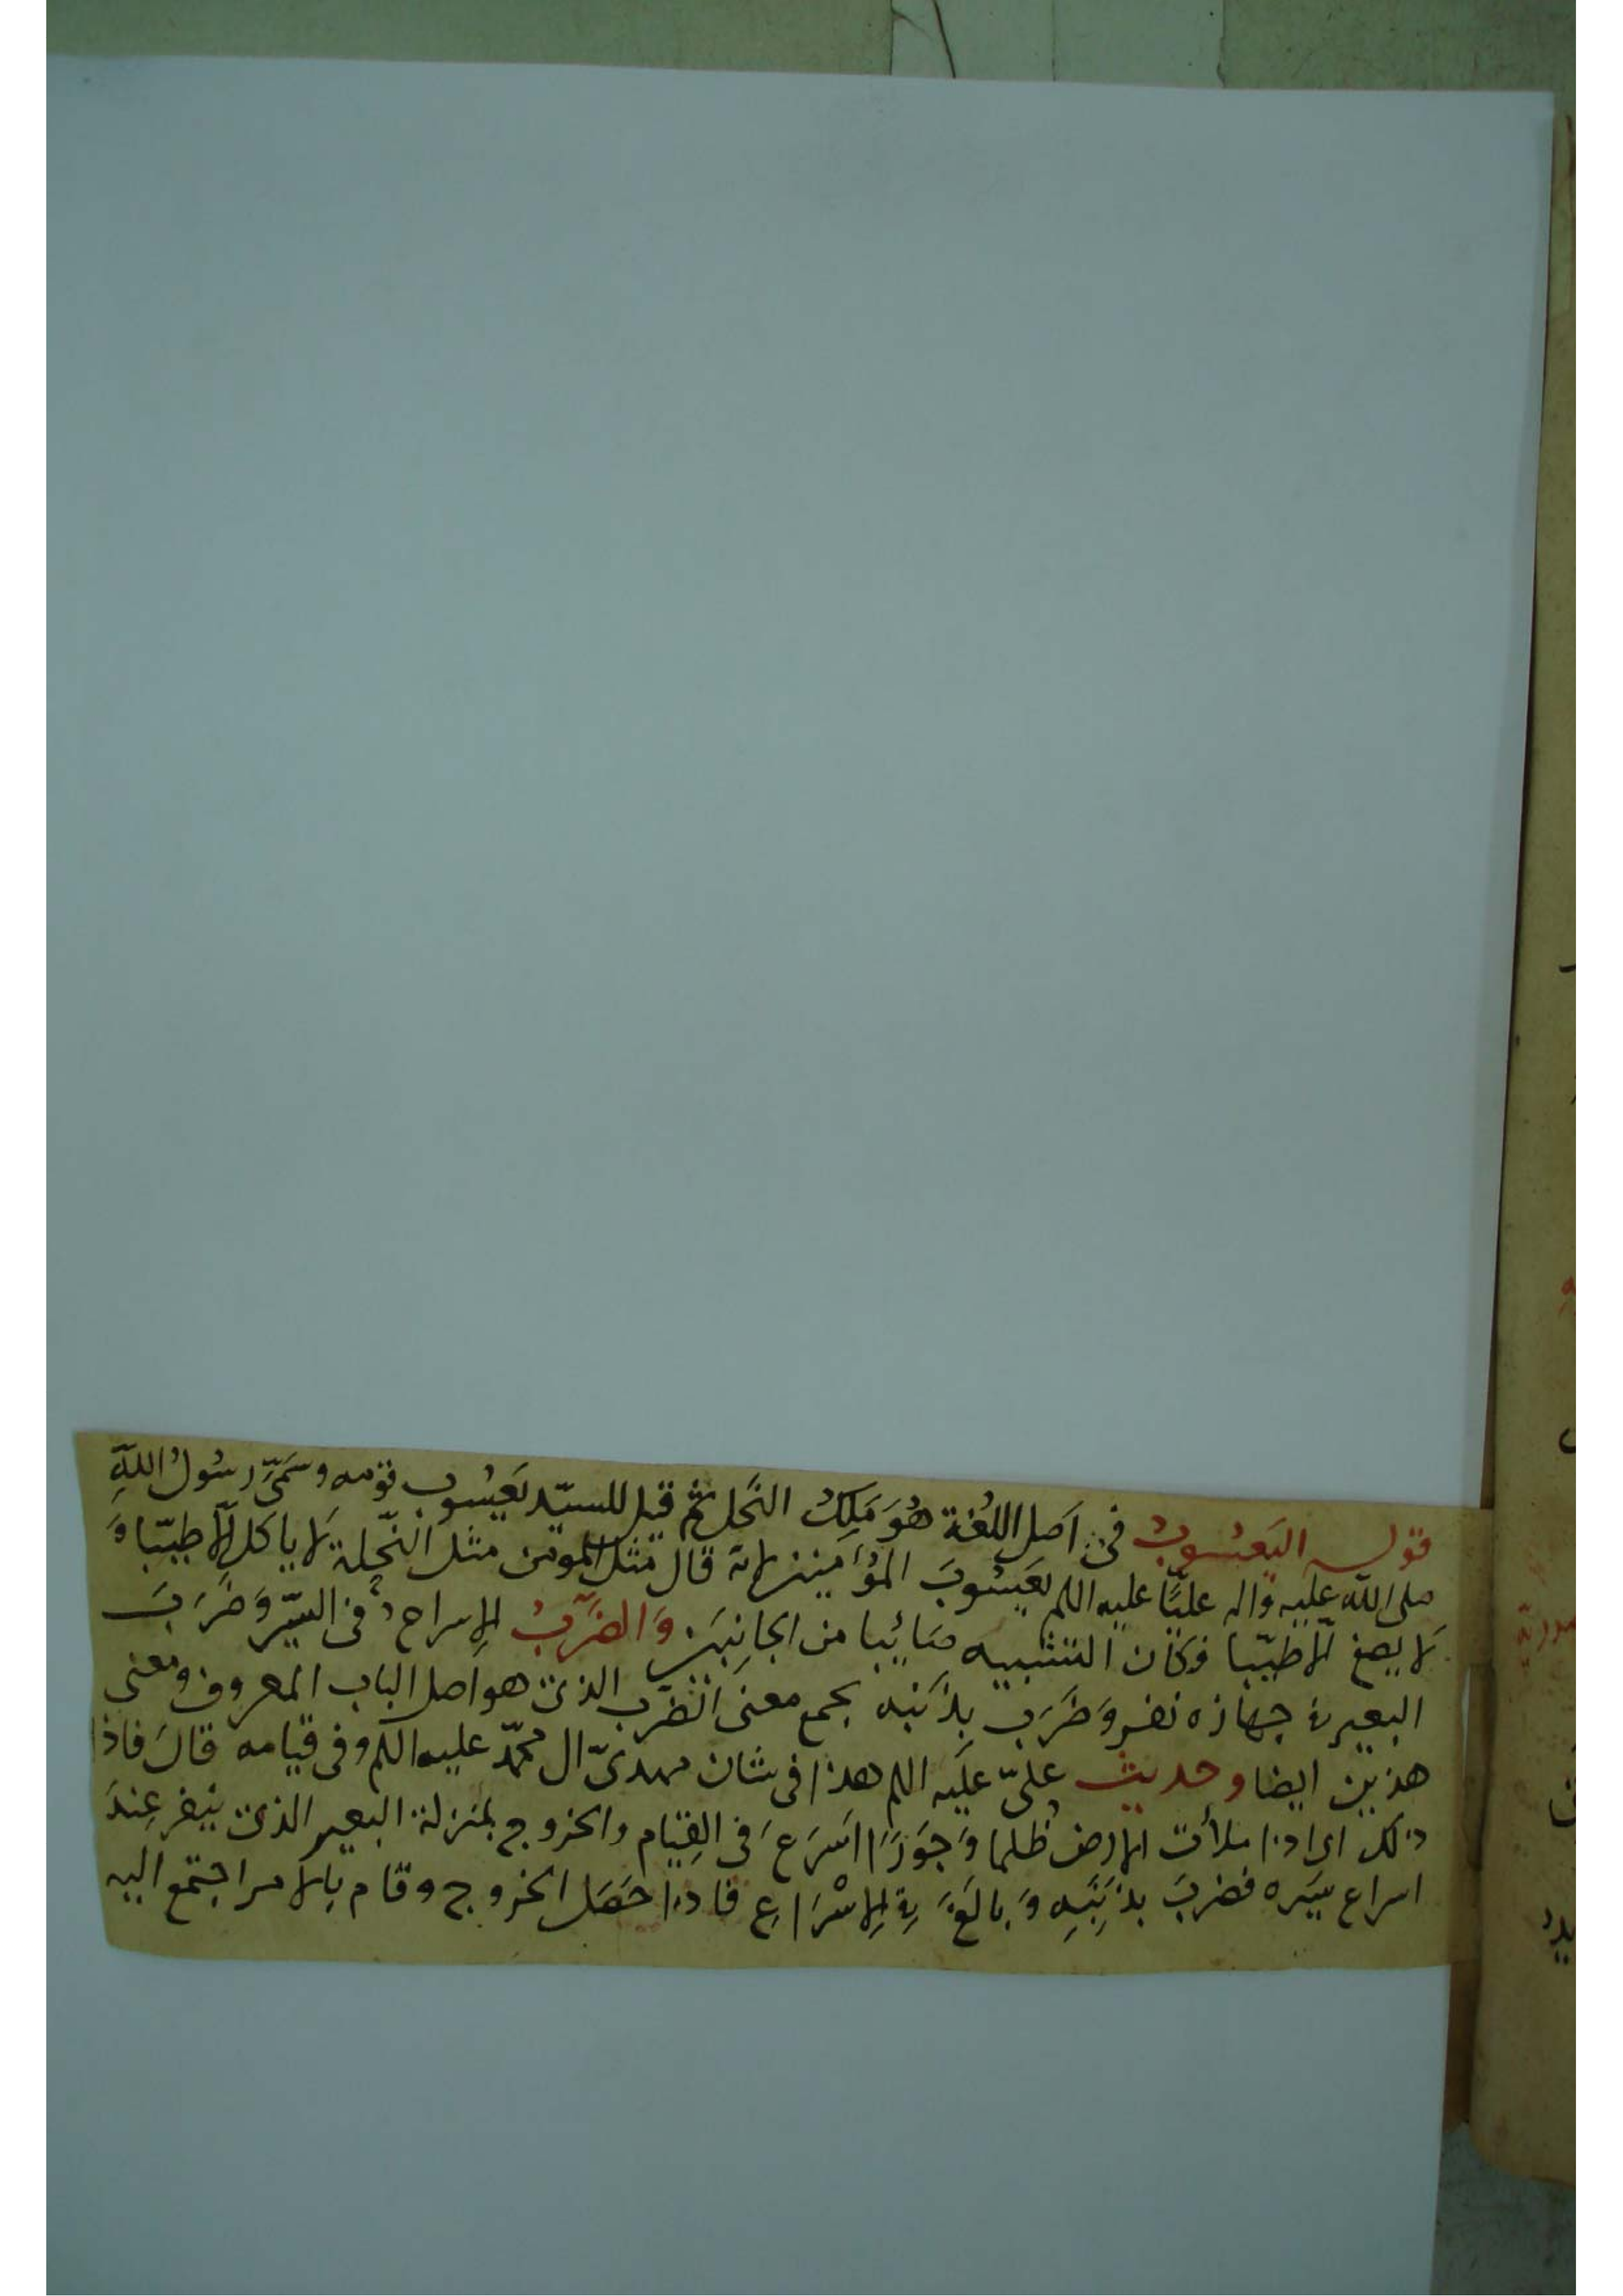 قوله اليَعْسُوبُ فى اَصل اللُغة هُوَ مَلِكُ النَحل ثم قيل للسيّد يَعسُوب قومه وسَمّىَ رسُولُ اللهِ
صلى الله عليه واله عليًّا عليه اللم يَعسُوبَ المؤمنين لانه قال مَثَل المومن مثل النّحلة لا ياكل الّا طيّبا وَ
لا يضع الّا طيّبا فكان التشبيه صَائبا من الجانبَين وَالضَّرْبُ الاسراع فى السَّير وَضَرَبَ
البعير فى جهازه نفر وَضَرَب بِذَنَبِه يجمع معنى الضَرْب الذى هو اصل الباب المعروف ومعنى
هذين ايضا وحديث علىّ عليه اللم هذا فى شان مهدىّ ال محمّد عليه اللم وفى قيامه قالَ فاذا
ذلك اى اذا ملأت الارض ظُلما وَجَورًا اَسرَعَ فى القِيام والخروج بمنزلة البعير الذى ينفر عِندَ
اسراع سَيره فضربَ بذَنَبِهِ وَبالَغَ فى الاِسْرَاعِ فاذا حَصَل الخروج وقام بالامر اجتمع اليه